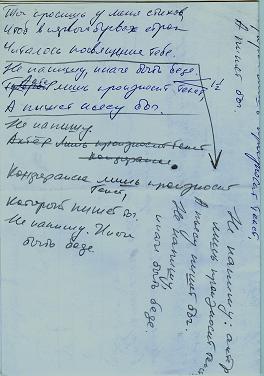 Ты просишь у меня стихов,
Чтоб в первых буквах строк
Читалось посвящение тебе.
Не напишу, иначе быть беде.
лишь произносит текст,
А пишет пьесу Бог.
Не напишу.
Актёр лишь произносит текст
Кондрашке лишь произносит
текст,
который пишет Бог.
Не напишу. Иначе
быть беде.
1½
А пишет Бог.
произносит текст,
Не напишу: актёр
лишь произносит текст,
А пьесу пишет Бог.
Не напишу,
иначе быть беде.